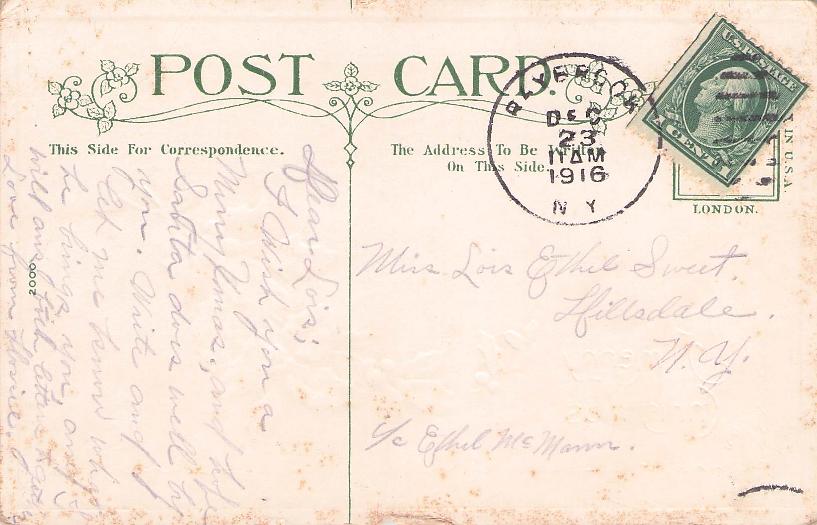 POST CARD.
This Side For Correspondence.
The Address To Be Written
On This Side.
DEC
23
11 AM
1916
N Y
U.S. POSTAGE
1 CENT 1
IN U.S.A.
LONDON.
2000
Dear Lois;
I Wish you a
Merry Xmas, and hope
Santa does well by
you. Write and
let me know what
he brings you and I
will ans
Love from
Miss Lois Ethel Sweet.
Hillsdale.
N. Y.
c/o Ethel McMann.